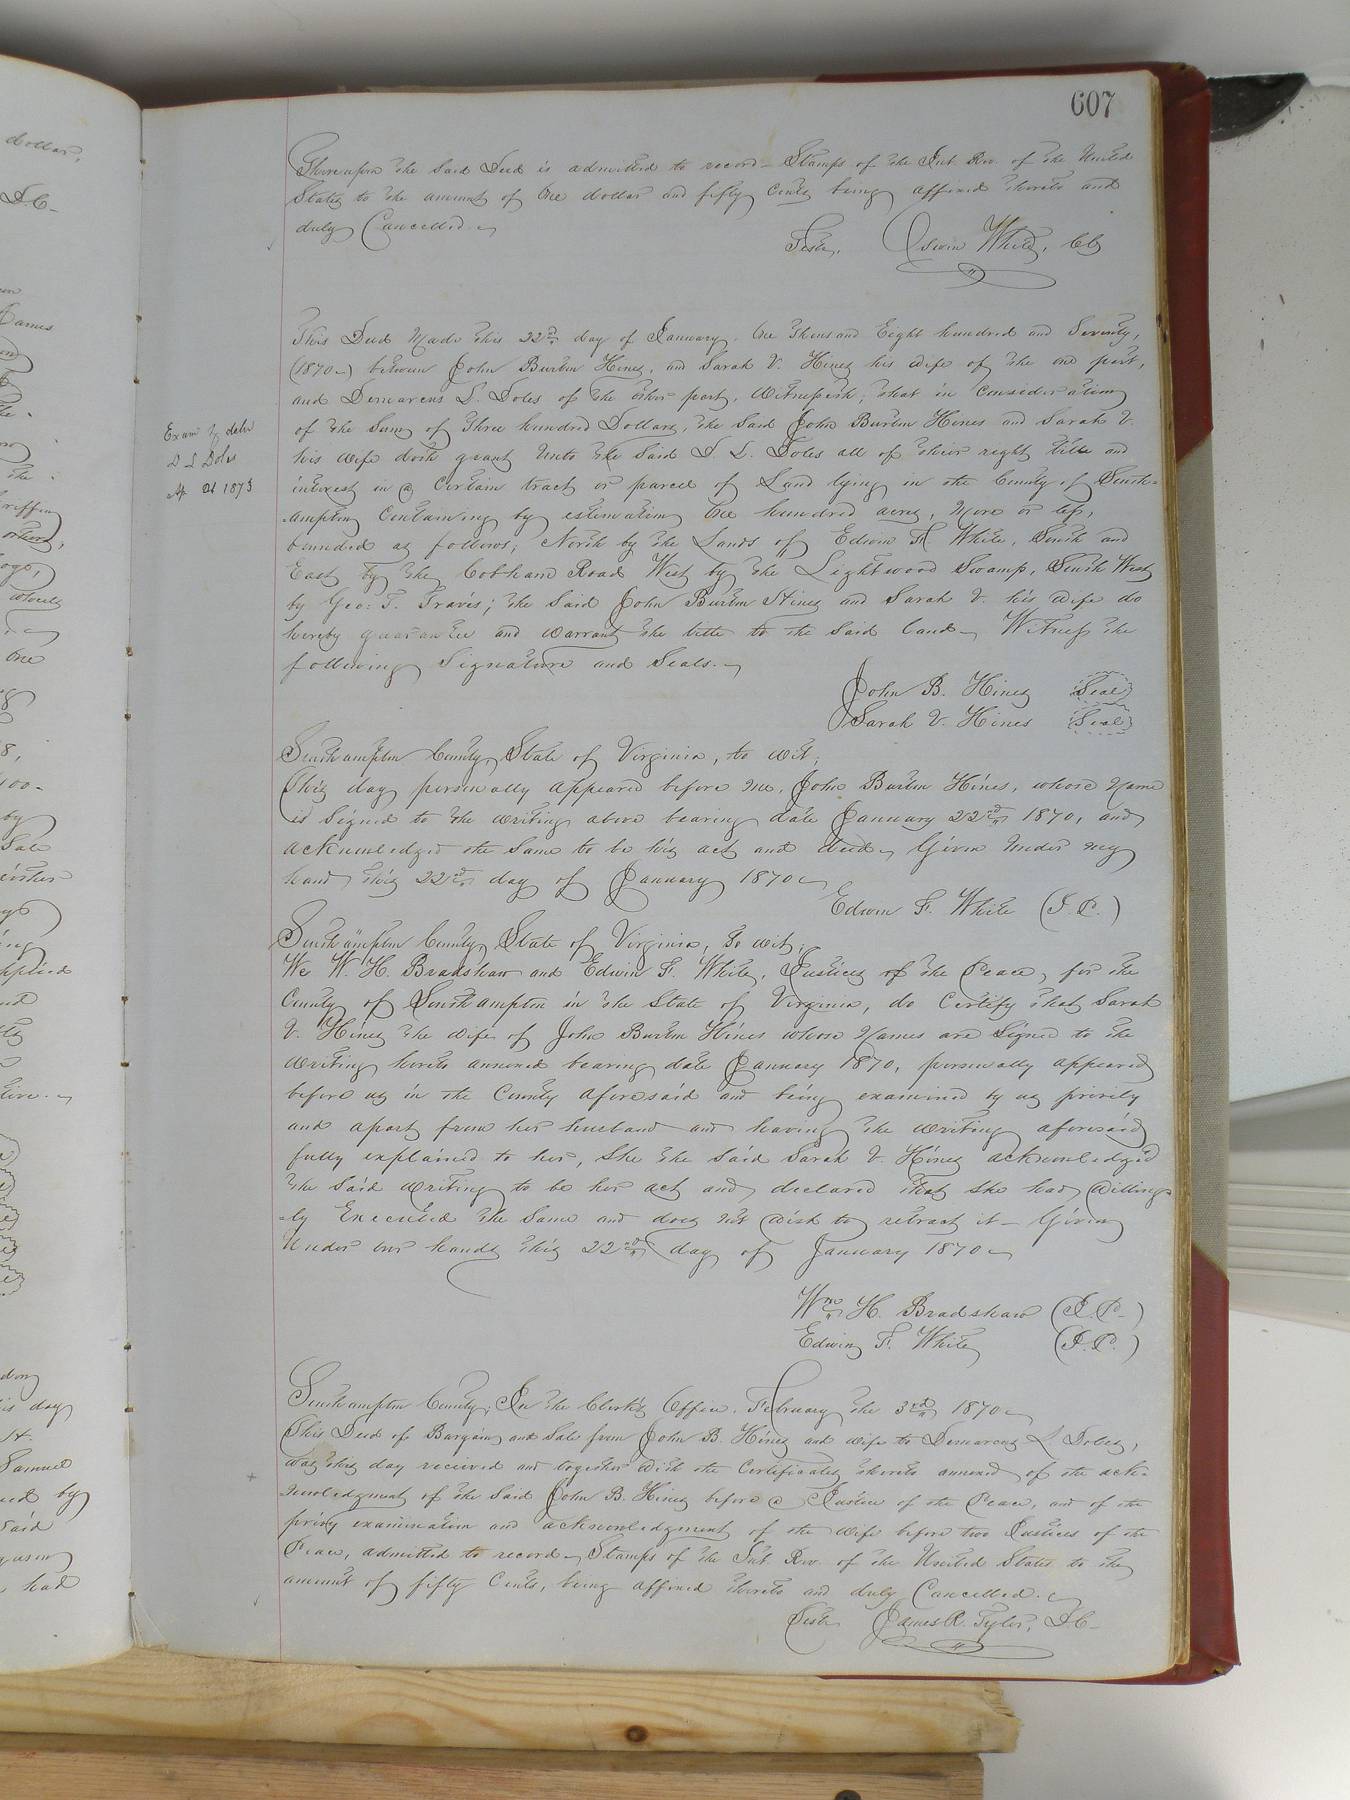 607
Thereupon the Said Deed is admitted to record - Stamps of the Int. Rev. of the United
States to the amount of One dollar and fifty Cents being affixed thereto and
duly Cancelled.
Teste, Edwin White, Clk
This Deed Made this 22nd day of January, One Thousand Eight hundred and Seventy,
(1870-) between John Burton Hines, and Sarah V. Hines his wife of the one part,
and Demarcus L. Doles of the other part, Witnesseth; that in Consideration
of the Sum of Three hundred Dollars, the Said John Burton Hines and Sarah V.
his wife doth grant Unto the Said D. L. Doles all of their right title and
interest in a Certain tract or parcel of Land lying in the County of South-
-ampton Containing by estimation One hundred acres, More or less,
bounded as follows; North by the Lands of Edwin F. White, South and
East by the Cobham Road West by the Lightwood Swamp, South West
by Geo: T. Travis; the Said John Burton Hines and Sarah V. his wife do
hereby guarantee and warrant the title to the Said land - Witness the
following Signature and Seals.
John B. Hines Seal
Sarah V. Hines Seal
Exam & deld
D L Doles
1873
Southampton County, State of Virginia, to wit;
This day personally appeared before me, John Burton Hines, whose Name
is Signed to the writing above bearing date January 22nd 1870, and
acknowledged the Same to be his act and deed. Given Under my
hand this 22nd day of January 1870
Edwin F. White (J.P.)
Southampton County, State of Virginia, To wit;
We W. H. Bradshaw and Edwin F. White, Justices of the Peace, for the
County of Southampton in the State of Virginia, do Certify that Sarah
V. Hines the wife of John Burton Hines whose Names are Signed to the
writing hereto annexed bearing date January 1870, personally appeared
before us in the County aforesaid and being examined by us privily
and apart from her husband and having the writing aforesaid
fully explained to her, She the Said Sarah V. Hines acknowledged
the Said writing to be her act and declared that she had willing-
-ly Executed the Same and does not wish to retract it - Given
Under our hands this 22nd day of January 1870
Wm H. Bradshaw (J.P.)
Edwin F. White (J.P.)
Southampton County; In the Clerk's Office, February the 3rd 1870
This Deed of Bargain and Sale from John B. Hines and wife to Demarcus L. Doles,
was this day received and together with the Certificates thereto annexed of the ack-
-nowledgment of the Said John B. Hines before a Justice of the Peace, and of the
privy examination and acknowledgment of the wife before two Justices of the
Peace, admitted to record - Stamps of the Int. Rev. of the United States to the
amount of fifty Cents, being affixed thereto and duly Cancelled.
Teste James R. Tyler, D.C.